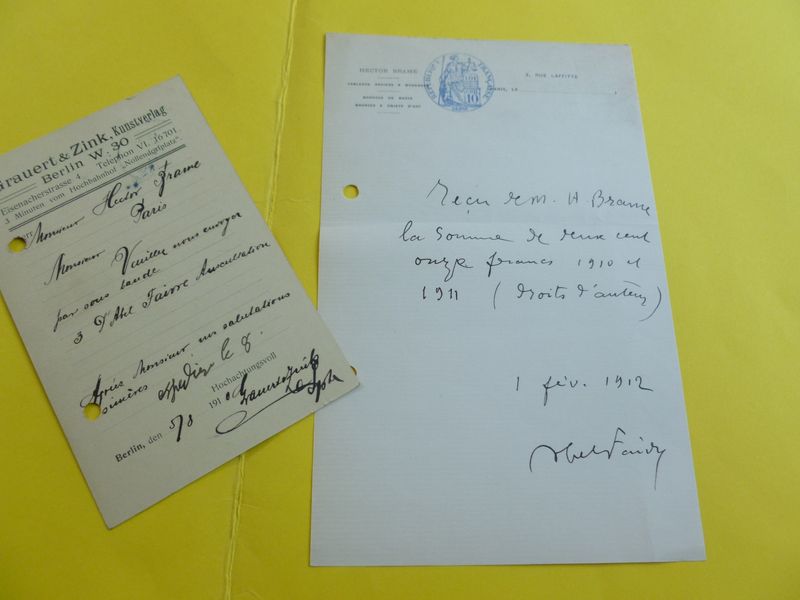 Grauert & Zink, Kunstverlag
Berlin W. 30
Eisenacherstrasse 4. Telephon VI. 16701
3 Minuten vom Hochbahnhof „Nollendorfplatz“
Monsieur Hector Brame
Paris
Monsieur
Veuillez nous envoyer
par sous bande
3 D'Abel Faivre Auscultation
Agréez Monsieur, nos salutations
sincères
expédié le 8
Hochachtungsvoll
Berlin, den 5/8 191
Grauert & Zink
HECTOR BRAME
TABLEAUX ANCIENS & MODERNES
BRONZES DE BARYE
BRONZES & OBJETS D'ART
REPUBLIQUE FRANÇAISE
10
2, RUE LAFFITTE
PARIS, LE
Reçu de M. H. Brame
la somme de deux cent
onze francs 1910 et
1911 (droits d'auteur)
1 fév. 1912
Abel Faivre